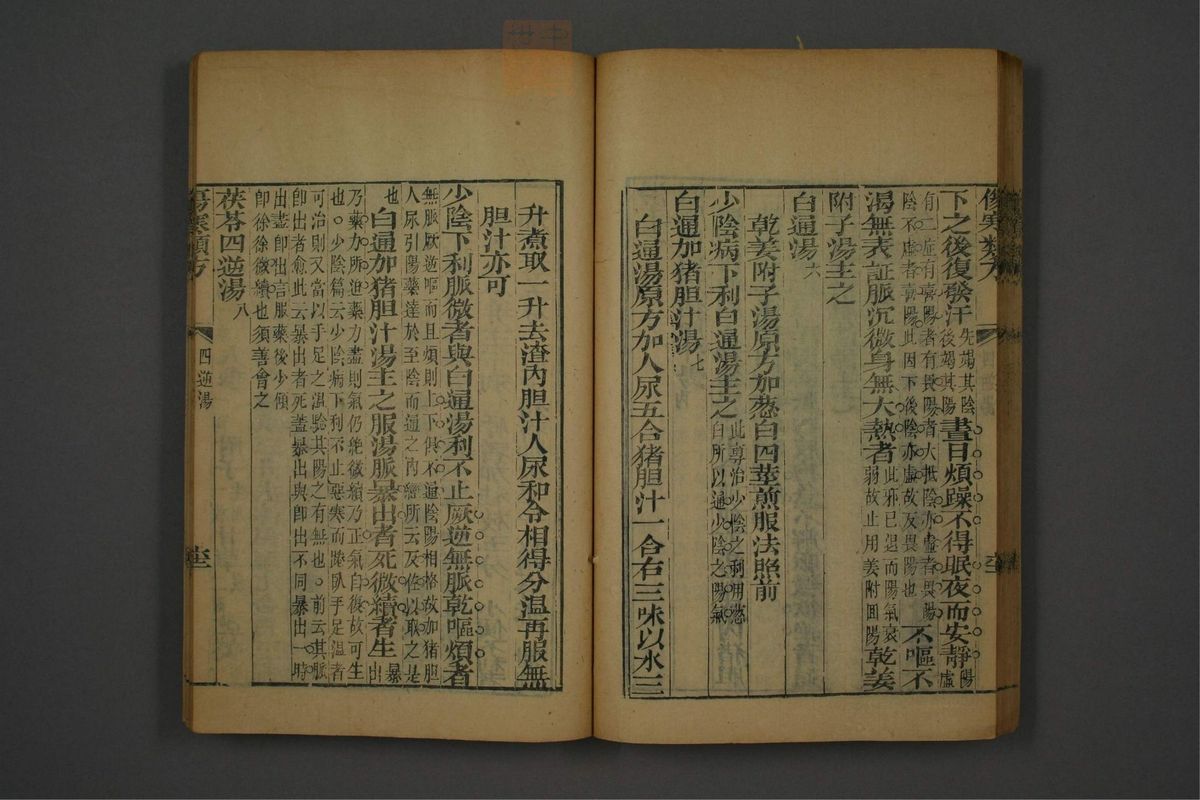 傷寒類方
下之後復發汗先竭其陰後竭其陽晝日煩躁不得眠夜而安靜陽虛
有二症有喜陽者有畏陽者大抵陰亦虛者畏陽
陰不虛者喜陽此因下後陰亦虛故反畏陽也不嘔不
渴無表証脈沉微身無大熱者此邪已退而陽氣衰弱故止用姜附回陽乾姜
附子湯主之
白通湯六
乾姜附子湯原方加葱白四莖煎服法照前
少陰病下利白通湯主之此專治少陰之利用葱白所以通少陰之陽氣
白通加猪胆汁湯七
白通湯原方加人尿五合猪胆汁一合右三味以水三
升煮取一升去渣內胆汁人尿和令相得分温再服無
胆汁亦可
少陰下利脈微者與白通湯利不止厥逆無脈乾嘔煩者
無脈厥逆嘔而且煩則上下俱不通陰陽相格故加猪胆
人尿引陽藥達於至陰而通之內經所云反佐以取之是
也白通加猪胆汁湯主之服湯脈暴出者死微續者生暴出
乃藥力所迫藥力盡則氣仍絶微續乃正氣自復故可生
也。少陰篇云少陰病下利不止惡寒而踡臥手足温者
可治則又當以手足之温驗其陽之有無也。前云其脈
即出者愈此云暴出者死葢暴出與即出不同暴出一時
出盡即出言服藥後少頃
即徐徐微續也須善會之
茯苓四逆湯八
傷寒類方 四逆湯